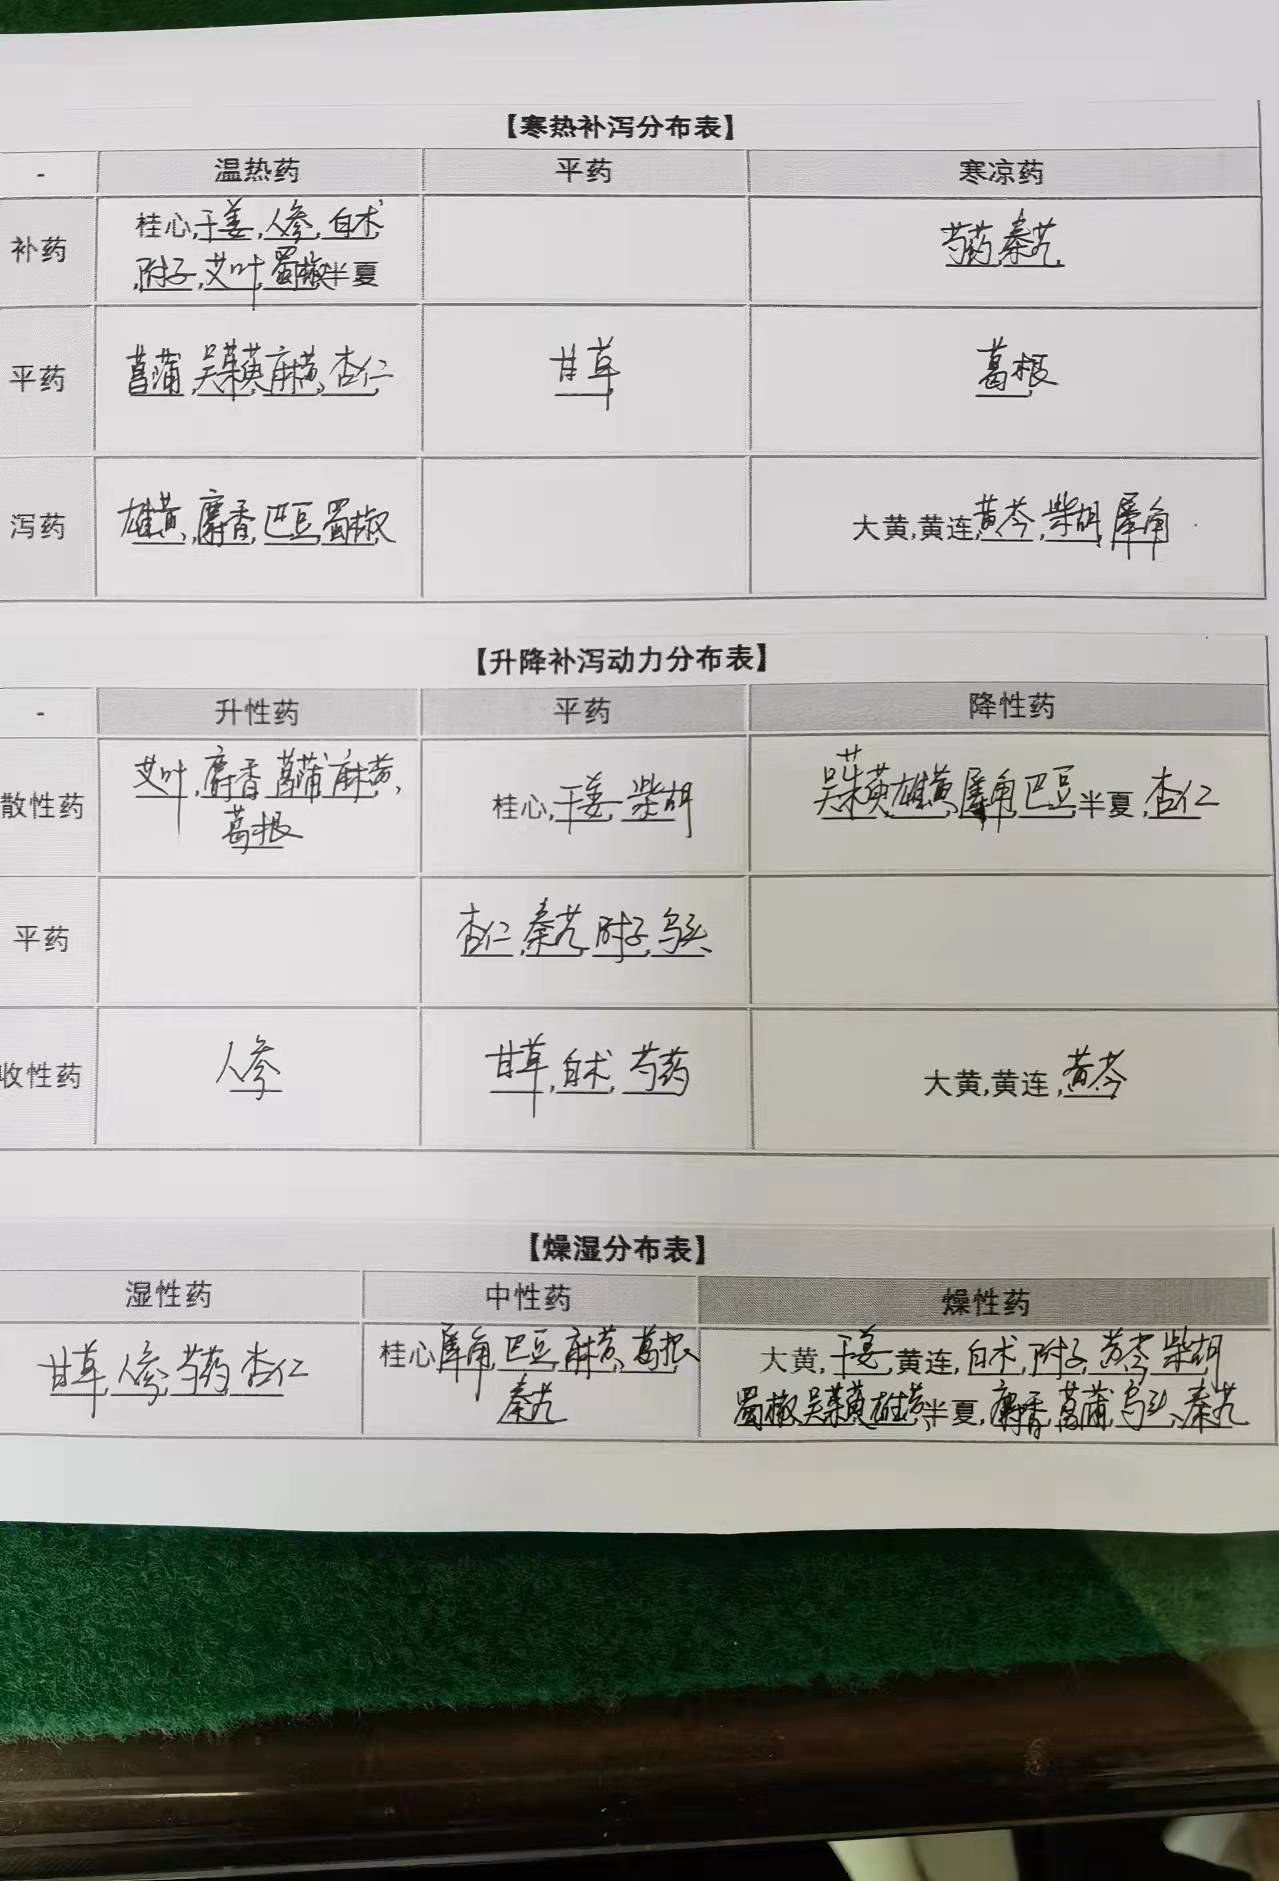 【寒热补泻分布表】
- 温热药 平药 寒凉药
补药 桂心,干姜,人参,白术, 芍药,秦艽
,附子,艾叶,蜀椒半夏
平药 菖蒲,吴茱萸,麻黄,杏仁 甘草 葛根
泻药 雄黄,麝香,巴豆,蜀椒 大黄,黄连,黄芩,柴胡,犀角
【升降补泻动力分布表】
- 升性药 平药 降性药
散性药 艾叶,麝香,菖蒲,麻黄, 桂心,干姜,柴胡 吴茱萸,雄黄,犀角,巴豆,半夏,杏仁
葛根
平药 杏仁,秦艽,附子,乌头
收性药 人参 甘草,白术,芍药 大黄,黄连,黄芩
【燥湿分布表】
湿性药 中性药 燥性药
甘草,人参,芍药,杏仁 桂心,犀角,巴豆,麻黄,葛根 大黄,干姜,黄连,白术,附子,黄芩,柴胡
秦艽 蜀椒,吴茱萸,雄黄,半夏,麝香,菖蒲,乌头,秦艽